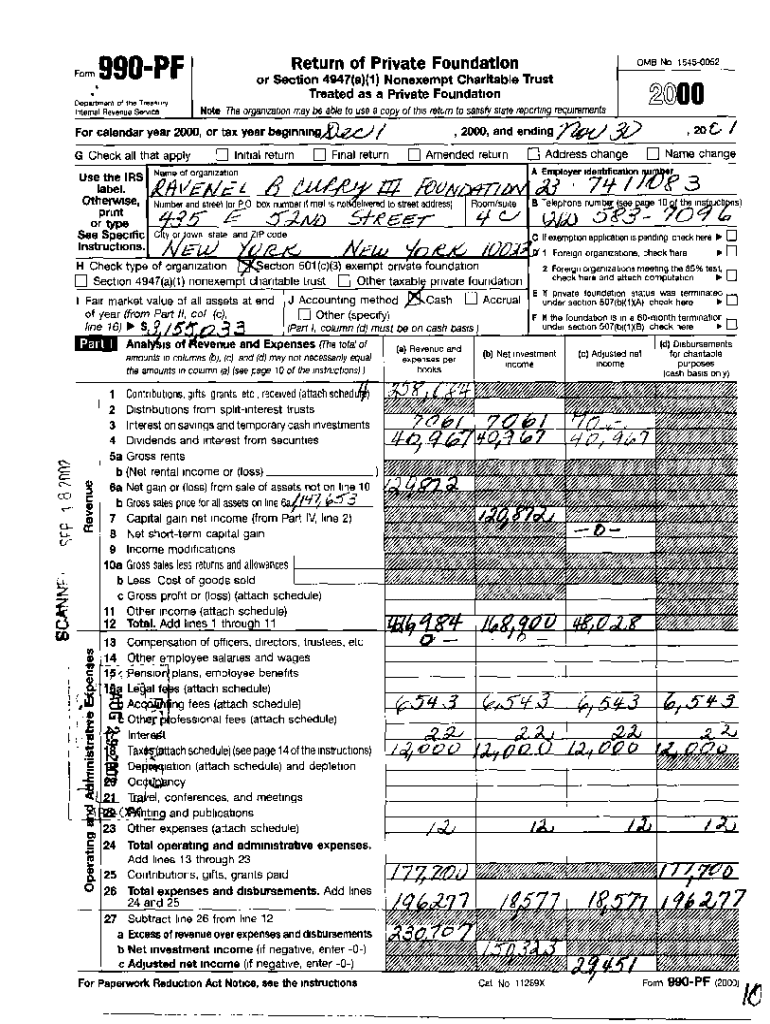 Form 990-PF
Department of the Treasury
Internal Revenue Service
Return of Private Foundation
or Section 4947(a)(1) Nonexempt Charitable Trust
Treated as a Private Foundation
Note The organization may be able to use a copy of this return to satisfy state reporting requirements
OMB No 1545-0052
2000
For calendar year 2000, or tax year beginning Dec 1 , 2000, and ending Nov 30 , 2001
G Check all that apply Initial return Final return Amended return Address change Name change
Use the IRS label. Otherwise, print or type See Specific Instructions.
Name of organization
RAVENEL B CURRY III FOUNDATION
A Employer identification number
23 - 7411083
Number and street (or P O box number if mail is not delivered to street address) Room/suite
435 E 52ND STREET 4C
B Telephone number (see page 10 of the instructions)
583-7096
City or town, state and ZIP code
NEW YORK NEW YORK
C If exemption application is pending check here ►
D 1 Foreign organizations, check here ►
2 Foreign organizations meeting the 85% test, check here and attach computation ►
E If private foundation status was terminated under section 507(b)(1)(A) check here ►
F If the foundation is in a 60-month termination under section 507(b)(1)(B) check here ►
H Check type of organization X Section 501(c)(3) exempt private foundation
Section 4947(a)(1) nonexempt charitable trust Other taxable private foundation
I Fair market value of all assets at end of year (from Part II, col (c), line 16) ► $ 3,155,033
J Accounting method X Cash Accrual
Other (specify)
(Part I, column (d) must be on cash basis)
Part I Analysis of Revenue and Expenses (The total of amounts in columns (b), (c) and (d) may not necessarily equal the amounts in column (a) (see page 10 of the instructions))
(a) Revenue and expenses per books
(b) Net investment income
(c) Adjusted net income
(d) Disbursements for charitable purposes (cash basis only)
Revenue
1 Contributions, gifts grants etc , received (attach schedule)
2 Distributions from split-interest trusts
3 Interest on savings and temporary cash investments 7061 7061
4 Dividends and interest from securities 40,967 40,967 40,967
5a Gross rents
b (Net rental income or (loss) )
6a Net gain or (loss) from sale of assets not on line 10 120,872
b Gross sales price for all assets on line 6a 1,147,653
7 Capital gain net income (from Part IV, line 2) 120,872
8 Net short-term capital gain -0-
9 Income modifications
10a Gross sales less returns and allowances
b Less Cost of goods sold
c Gross profit or (loss) (attach schedule)
11 Other income (attach schedule)
12 Total. Add lines 1 through 11 426,984 168,900 48,028
Operating and Administrative Expenses
13 Compensation of officers, directors, trustees, etc 0 -
14 Other employee salaries and wages
15 Pension plans, employee benefits
16a Legal fees (attach schedule)
Accounting fees (attach schedule) 6543 6,543 6,543 6,543
Other professional fees (attach schedule)
Interest 22 22 22 22
Taxes (attach schedule) (see page 14 of the instructions) 12,000 12,000 12,000 12,000
Depreciation (attach schedule) and depletion
20 Occupancy
21 Travel, conferences, and meetings
22 Printing and publications
23 Other expenses (attach schedule) 12 12 12 12
24 Total operating and administrative expenses.
Add lines 13 through 23
25 Contributions, gifts, grants paid 177,700 177,700
26 Total expenses and disbursements. Add lines 24 and 25 196277 18,577 18,577 196277
27 Subtract line 26 from line 12
a Excess of revenue over expenses and disbursements 230,707
b Net investment income (if negative, enter -0-) 150,323
c Adjusted net income (if negative, enter -0-) 29,451
For Paperwork Reduction Act Notice, see the instructions Cat No 11289X Form 990-PF (2000)
10